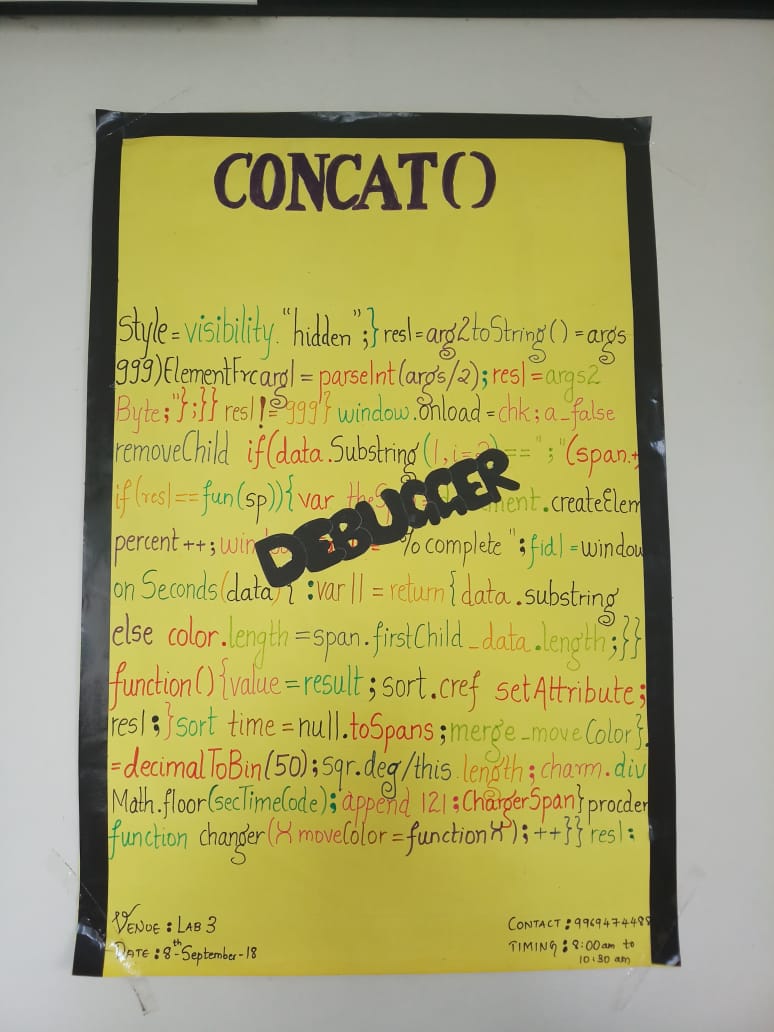 CONCAT()
Style = visibility. "hidden";} res1=arg2toString() = args
999)ElementFrcarg1 = parseInt(args/2); res1 = args2
Byte;"};}} res1 != 999} window.onload = chk; a_false
removeChild if(data.Substring(1,i=2)==";"(span.+
if(res1==fun(sp)){var createElem
DEBUGGER
percent++; % complete"; fid1 = window
on Seconds(data) { :var11 = return{data.substring
else color.length = span.firstChild_data.length;}}
function(){value = result; sort.cref setAttribute;
res1;} sort time = null.toSpans; merge_moveColor}.
=decimalToBin(50); sqr.deg/this.length; charm.div
Math.floor(secTimeCode); append 121; ChargerSpan} procder
function changer(X moveColor = function X); ++}} res1:
VENUE : LAB 3
DATE : 8th-September-18
CONTACT : 9969474488
TIMING : 8:00am to
10:30 am